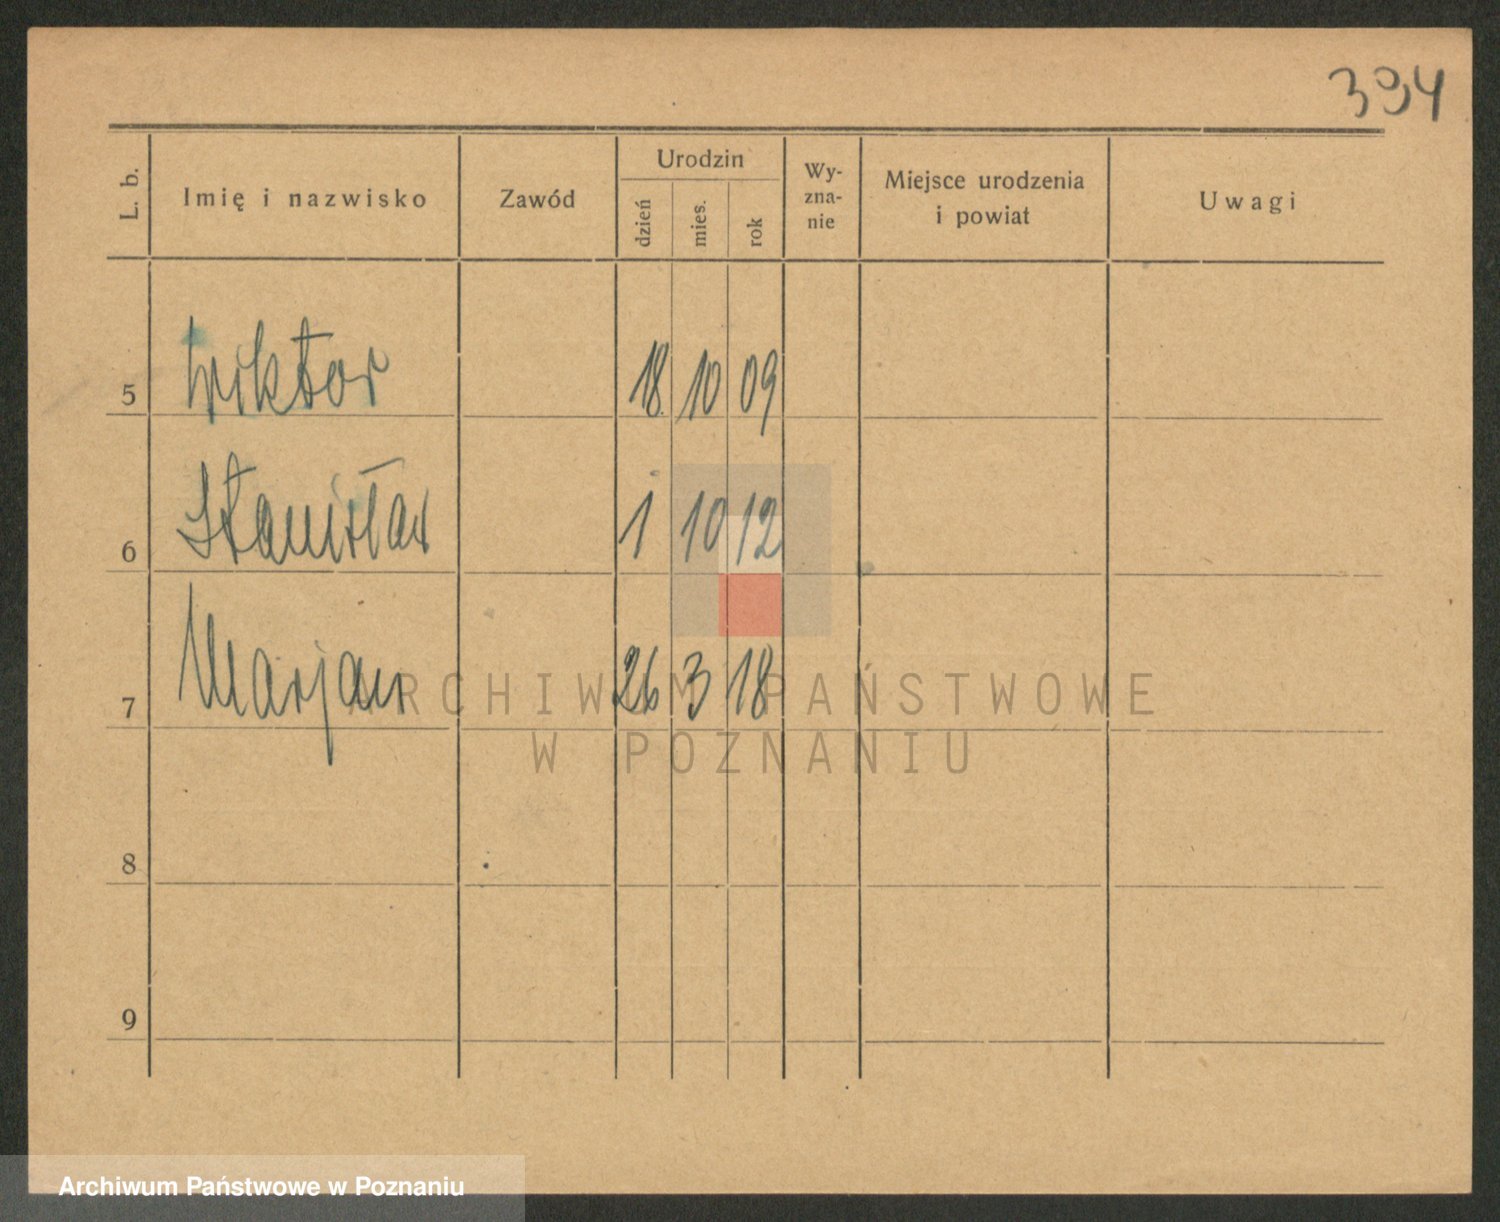 394
L. b. Imię i nazwisko Zawód Urodzin Wy-zna-nie Miejsce urodzenia i powiat Uwagi
dzień mies. rok
5 Wiktor 18. 10 09
6 Stanisław 1 10 12
7 Marjan 26 3 18
8
9
ARCHIWUM PAŃSTWOWE
W POZNANIU
Archiwum Państwowe w Poznaniu